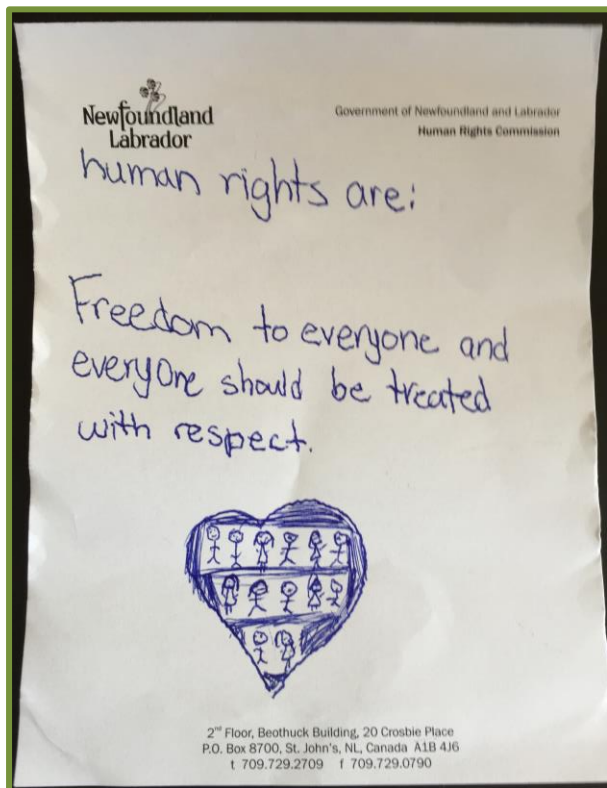 Newfoundland
Labrador
Government of Newfoundland and Labrador
Human Rights Commission
human rights are:
Freedom to everyone and
everyone should be treated
with respect.
2nd Floor, Beothuck Building, 20 Crosbie Place
P.O. Box 8700, St. John's, NL, Canada A1B 4J6
t 709.729.2709 f 709.729.0790